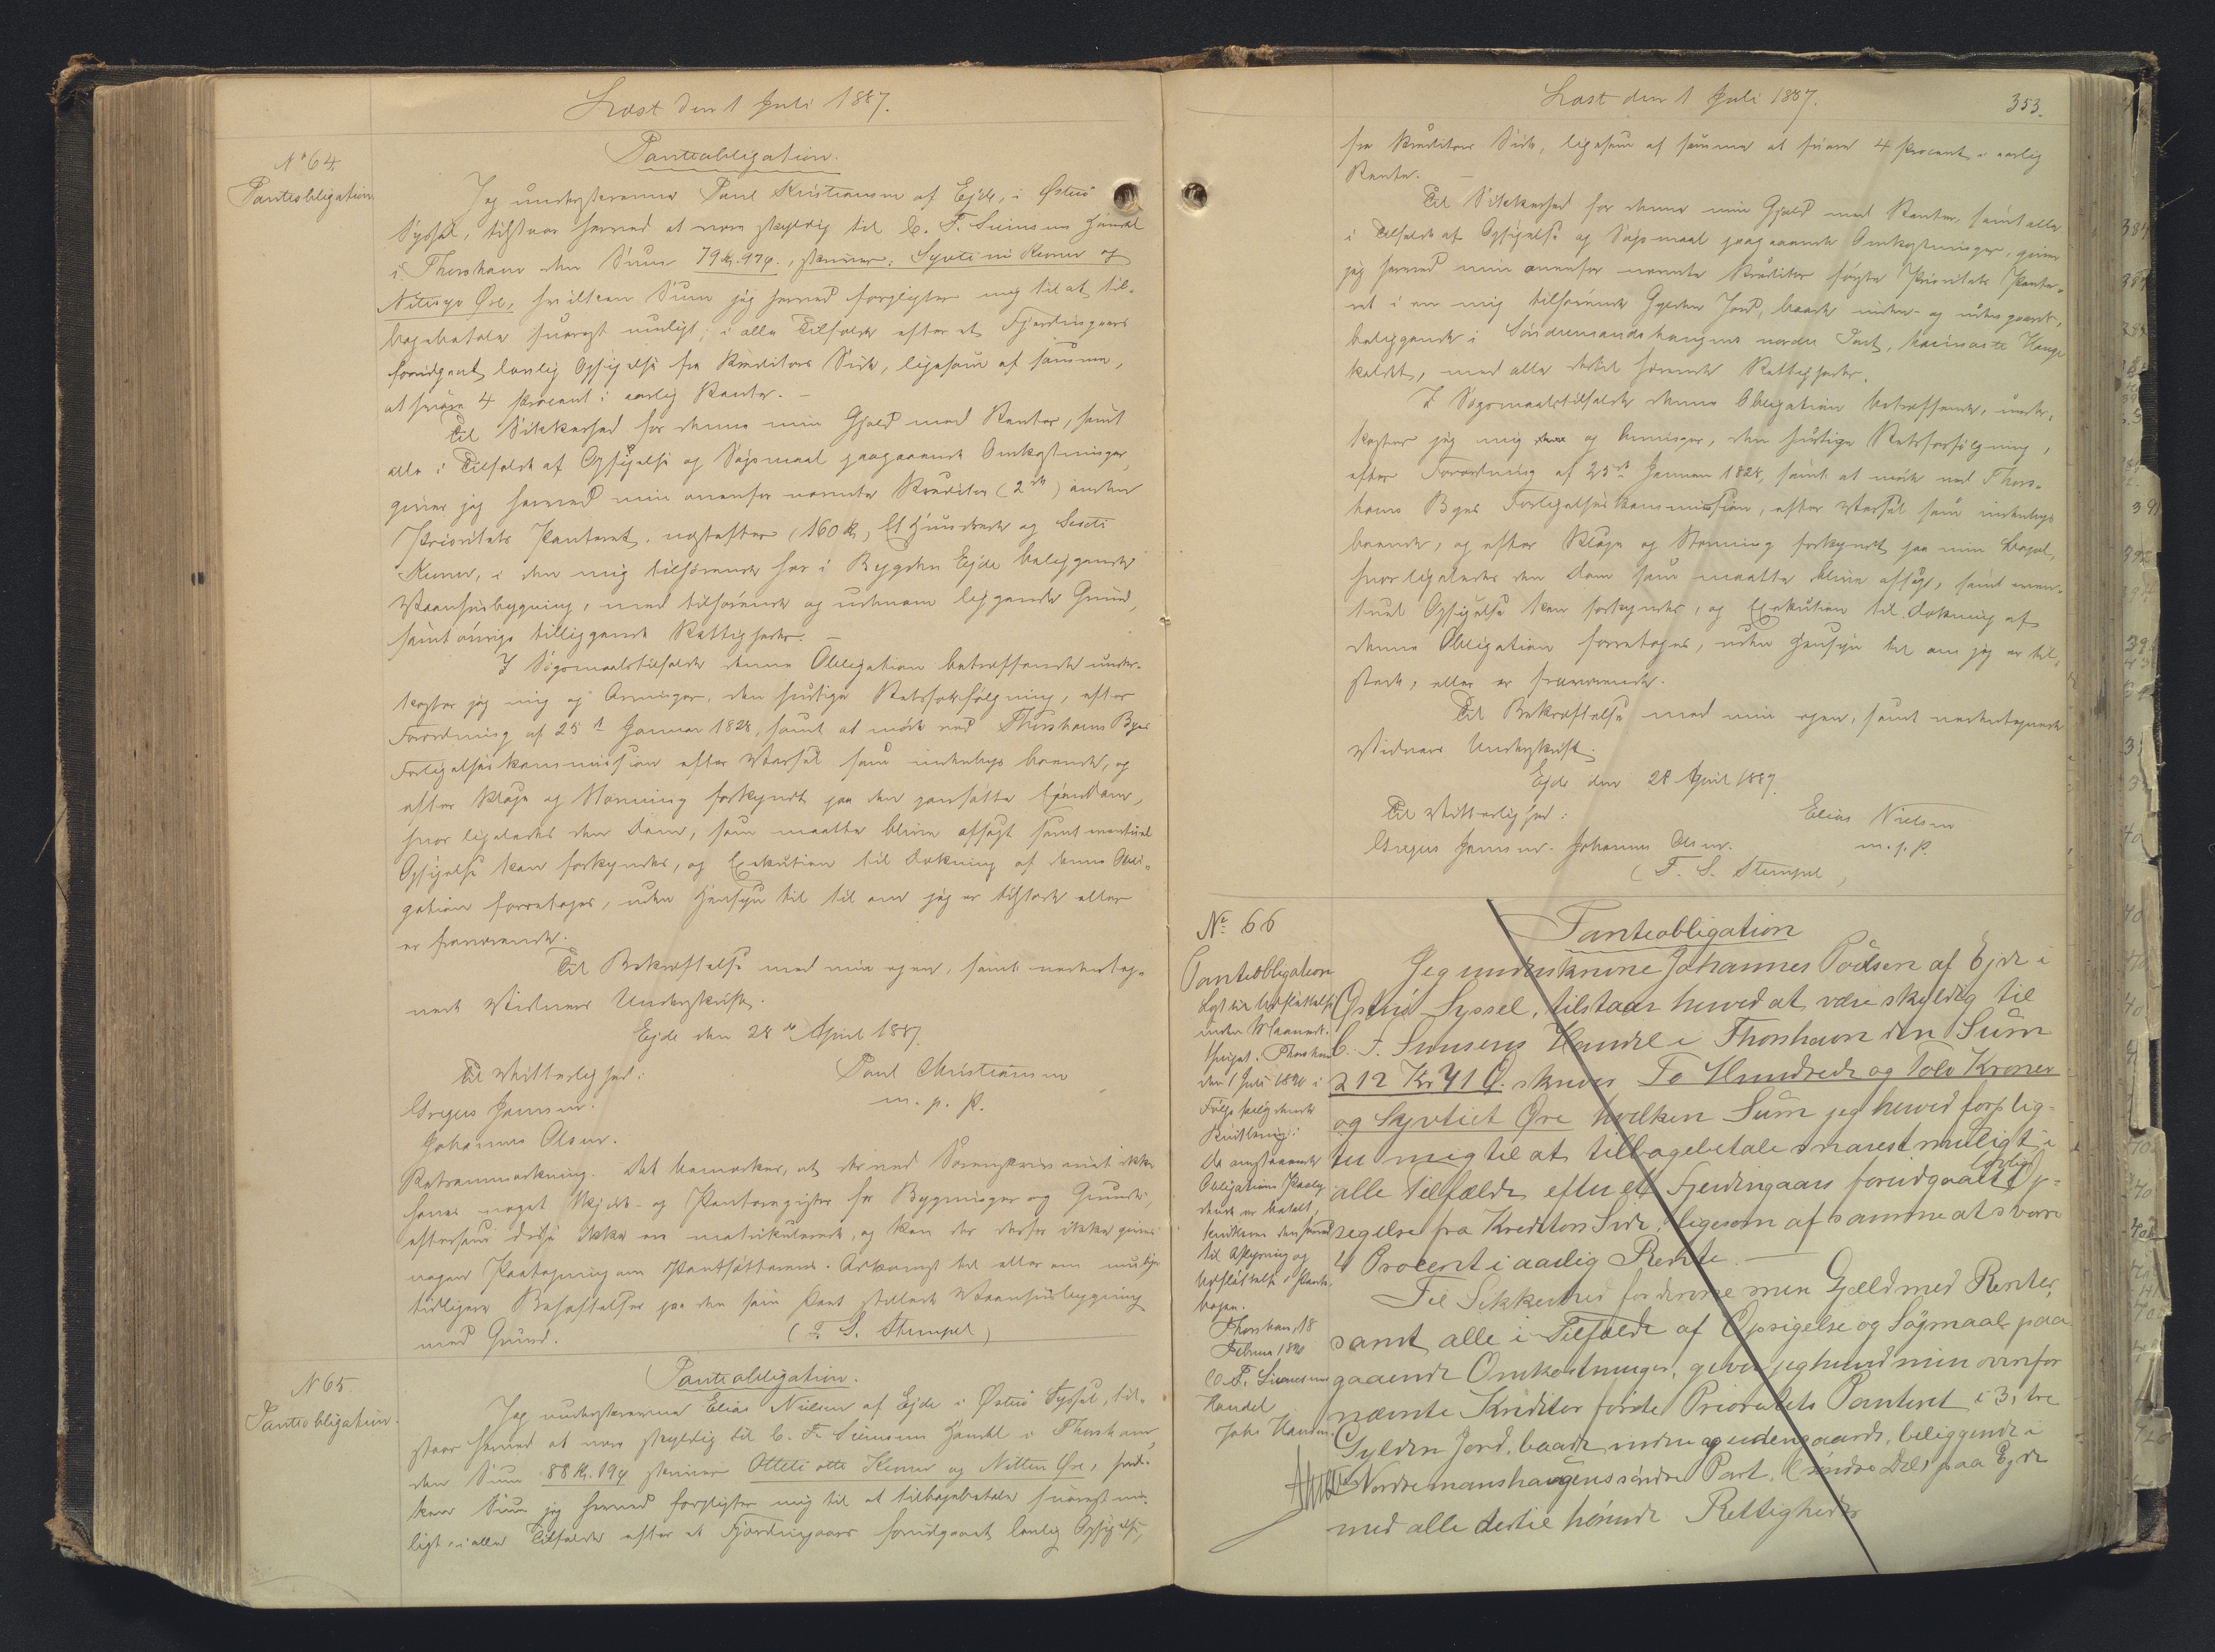 Læst den 1 Juli 1887.
Nº 64
Panteobligation
Panteobligation.
Jeg underskrevne Poul Kristiansen af Ejde, i Østerö
Syssel, tilstaar herved at være skyldig til C. F. Siemsens Handel
i Thorshavn den Sum 79 Kr. 97 Ø., skriver: Syvti ni Kroner og
Nitisyv Øre, hvilken Sum jeg herved forpligter mig til at til-
bagebetale snarest muligt; i alle Tilfælde efter et Fjerdingaars
forudgaaet lovlig Opsigelse fra Kreditors Side, ligesom af samme,
at svare 4 Procent i aarlig Rente. —
Til Sikkerhed for denne min Gjæld med Renter, samt
alle i Tilfælde af Opsigelse og Søgsmaal paagaaende Omkostninger,
giver jeg herved min ovenfor nævnte Kreditor (2den) anden
Prioritets Panteret, næstefter (160 Kr, Et Hundrede og Sexti
Kroner, i den mig tilhørende her i Bygden Ejde beliggende
Vaanhusbygning, med tilhørende og udenom liggende Grund,
samt øvrige tilliggende Rettigheder. —
I Søgsmaalstilfælde denne Obligation betræffende under-
kaster jeg mig og Arvinger, den hurtige Retsforfølgning, efter
Forordning af 25de Januar 1828, samt at møde ved Thorshavns Byes
Forligelseskommission efter Varsel som indenbys boende, og
efter Klage og Stævning forkyndt paa den pansatte Ejendom,
hvor ligeledes den Dom, som maatte blive afsagt samt eventuel
Opsigelse kan forkyndes, og Exekution til Dækning af denne Obli-
gation foretages, uden Hensyn til til om jeg er tilstede eller
er fraværende.
Til Bekræftelse med min egen, samt underteg-
nede Vidners Underskrift.
Ejde den 28de April 1887.
Til Vitterlighed:
Poul Christiansen
Gregus Jensen.
m. p. P.
Johannes Olsen.
Retsanmærkning. Det bemærkes, at der ved Sorenskriveriet ikke
haves noget Skjøde- og Panteregister for Bygninger og Grunde,
eftersom disse ikke ere matrikulerede, og kan der derfor ikke gives
nogen Paategning om Pantsætterens Adkomst til eller om mulige
tidligere Behæftelser paa den som Pant stillede Vaanhusbygning
med Grund.
(T. S. Stempel)
N 65.
Panteobligation.
Panteobligation.
Jeg underskrevne Elias Nielsen af Ejde i Østerö Syssel, til-
staar herved at være skyldig til C. F. Siemsens Handel i Thorshavn,
den Sum 88 Kr. 19 Ø skriver Otteti otte Kroner og Nitten Øre, hvil-
ken Sum jeg herved forpligter mig til at tilbagebetale snarest mu-
ligt, i alle Tilfælde efter et Fjerdingaars forudgaaet lovlig Opsigelse,
Læst den 1 Juli 1887.
353.
fra Kreditors Side, ligesom af samme at svare 4 Procent i aarlig
Rente. —
Til Sikkerhed for denne min Gjæld med Renter, samt alle
i Tilfælde af Opsigelse og Søgsmaal paagaaende Omkostninger, giver
jeg herved min ovenfor nævnte Kreditor første Prioritets Pante-
ret i en mig tilhørende Gylden Jord, baade inden- og udengaards,
beliggende i Søndremandshaugens nordre Part,
kaldet, med alle dertil hørende Rettigheder.
I Søgsmaalstilfælde denne Obligation betræffende, under-
kaster jeg mig og Arvinger, den hurtige Retsforfølgning,
efter Forordning af 25de Januar 1828, samt at møde ved Thors-
havns Byes Forligelseskommission, efter Varsel som indenbys
boende, og efter Klage og Stævning forkyndt paa min Bopæl,
hvor ligeledes den Dom som maatte blive afsagt, samt even-
tuel Opsigelse kan forkyndes, og Exekution til Dækning af
denne Obligation foretages, uden Hensyn til om jeg er til-
stede, eller er fraværende.
Til Bekræftelse med min egen, samt undertegnede
Vidners Underskrift.
Ejde den 28 April 1887.
Til Vitterlighed:
Elias Nielsen
Gregus Jensen. Johannes Olsen.
m. p. P.
(T. S. Stempel)
Nº 66
Panteobligation
Lyst til Udslettelse
inden
Thinget. Thorshavn
den 1 Juli 1890 i
Følge paategnede
Kvittering:
Da omstaaende
Obligations Paaly-
dende er betalt,
kvitteres den herved
til Aflysning og
Udslettelse i Pante-
bogen.
Thorshavn, 18
Februar 1890
C. F. Siemsens
Handel
Johs Hansen.
Panteobligation
Jeg underskrevne Johannes Poulsen af Ejde i
Østerö Syssel, tilstaar herved at være skyldig til
C. F. Simsens Handel i Thorshavn den Sum
212 Kr 71 Ø. skriver To Hundrede og Tolv Kroner
og Syvtiet Øre hvilken Sum jeg herved forplig-
ter mig til at tilbagebetale snarest muligt i
alle Tilfælde efter et Fjerdingaars forudgaaet lovlig Op-
segelse fra Kreditors Side, ligesom af samme at svare
4 Procent i aarlig Rente. —
Til Sikkerhed for denne min Gjæld med Renter,
samt alle i Tilfælde af Opsigelse og Søgmaal paa
gaaende Omkostninger, giver jeg herved min ovenfor
nævnte Kreditor første Prioritets Panteret i 3, tre
Gylden Jord, baade inden og udengaards, beliggende i
Nordremanshaugens søndre Part, (søndre Del) paa Ejde
med alle dertil hørende Rettigheder